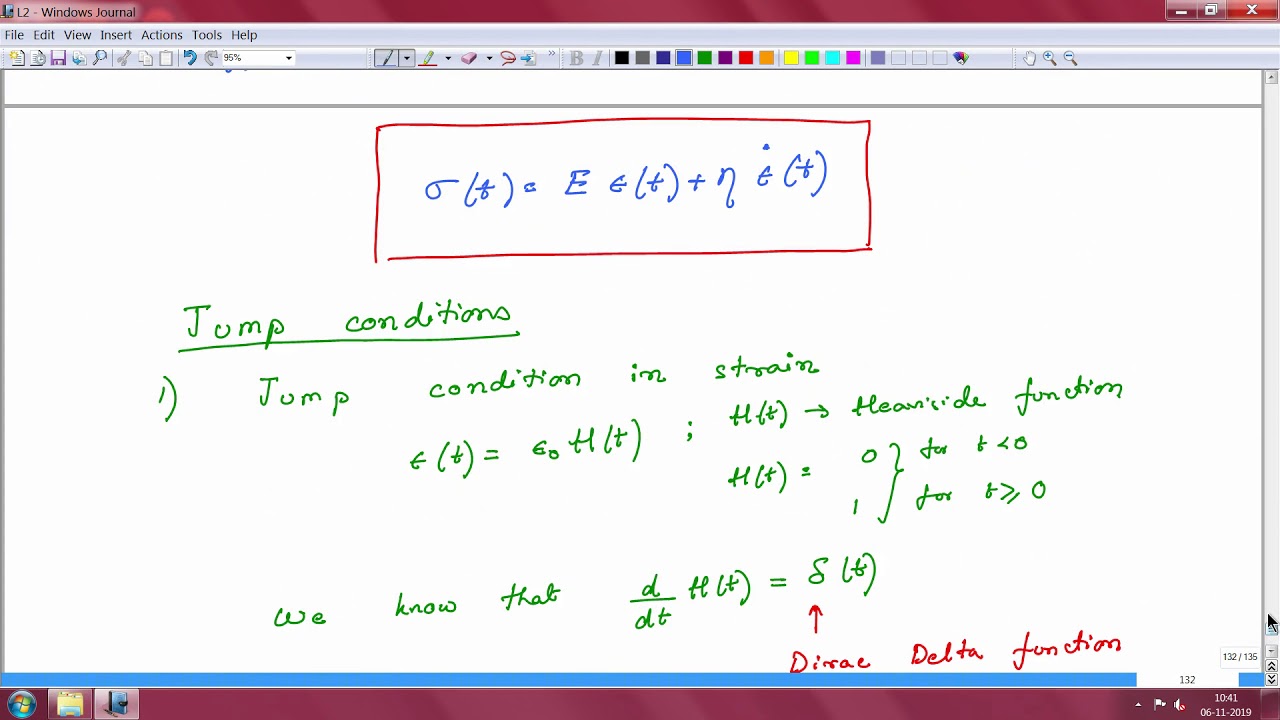 L2 - Windows Journal
File Edit View Insert Actions Tools Help
95%
B I
σ(t) = E ϵ(t) + η ϵ̇(t)
Jump conditions
1) Jump condition in strain
ϵ(t) = ϵ₀ H(t) ; H(t) → Heaviside function
H(t) = 0 } for t < 0
1 } for t ⩾ 0
We know that d/dt H(t) = δ(t)
↑
Dirac Delta function
132 / 135
132
10:41
06-11-2019